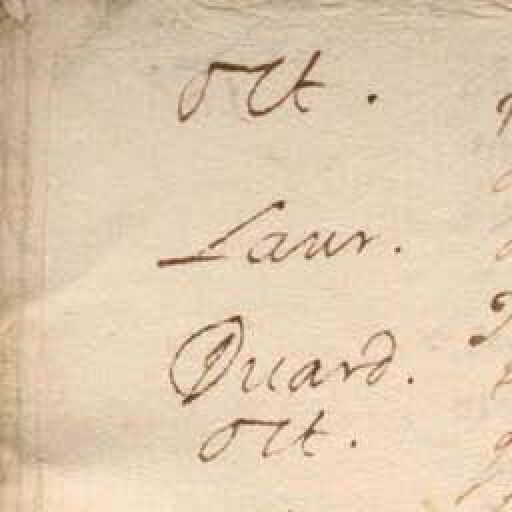 Ott.
Laur.
Ducard.
Ott.